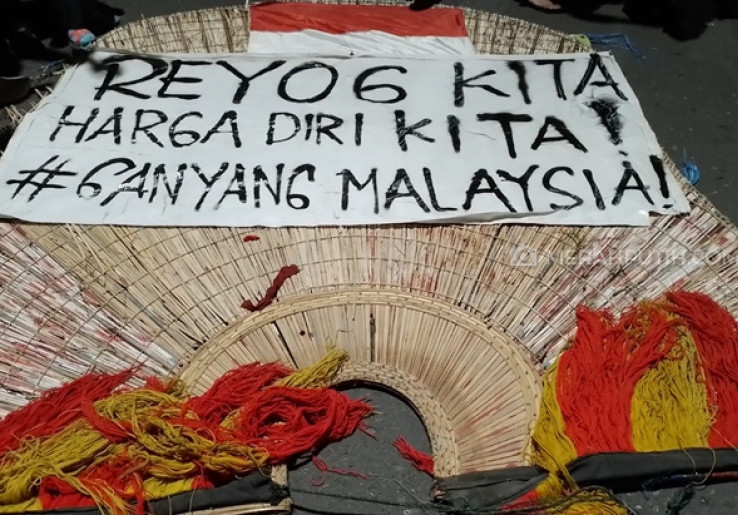 REYOG KITA
HARGA DIRI KITA!
#GANYANG MALAYSIA!
MERAHPUTIH.COM